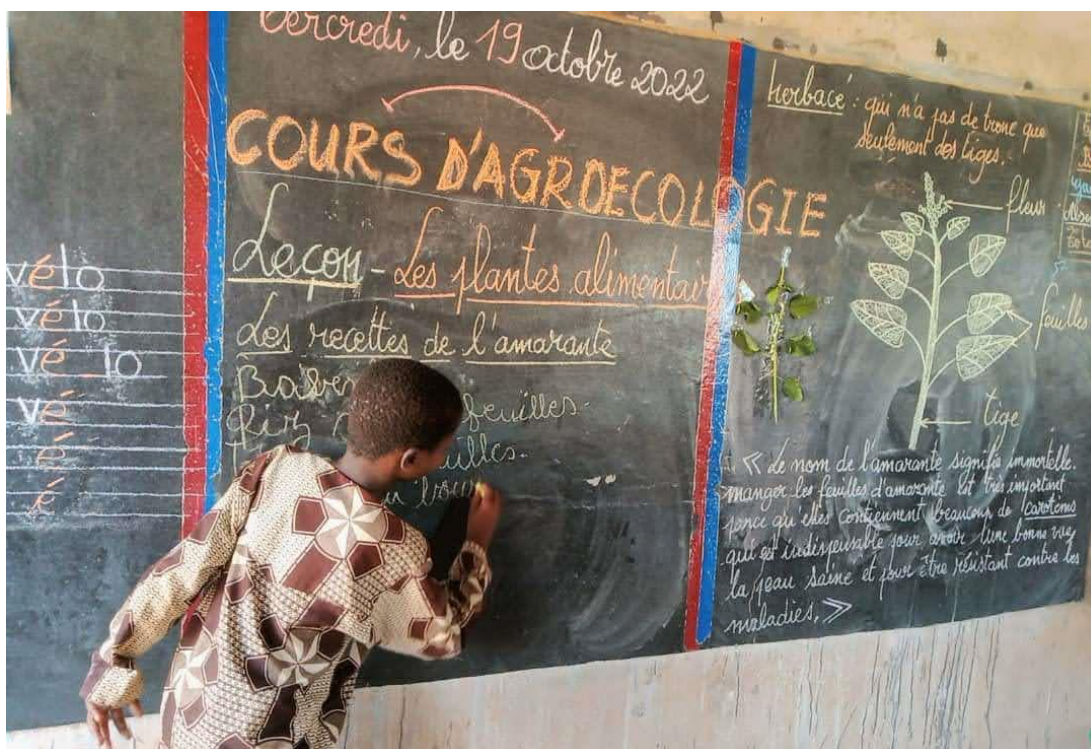 vélo
vélo
vé lo
vé
é
é
le 19 octobre 2022
COURS D'AGROECOLOGIE
Leçon - Les plantes
Les recettes de l'amarante
Riz feuilles.
herbacé : qui n'a pas de tronc que
seulement des tiges.
fleur
feuilles
tige
« Le nom de l'amarante signifie immortelle.
manger les feuilles d'amarante est très important
parce qu'elles contiennent beaucoup de
qui est indispensable pour avoir une bonne vue,
la peau saine et pour être résistant contre les
maladies. »